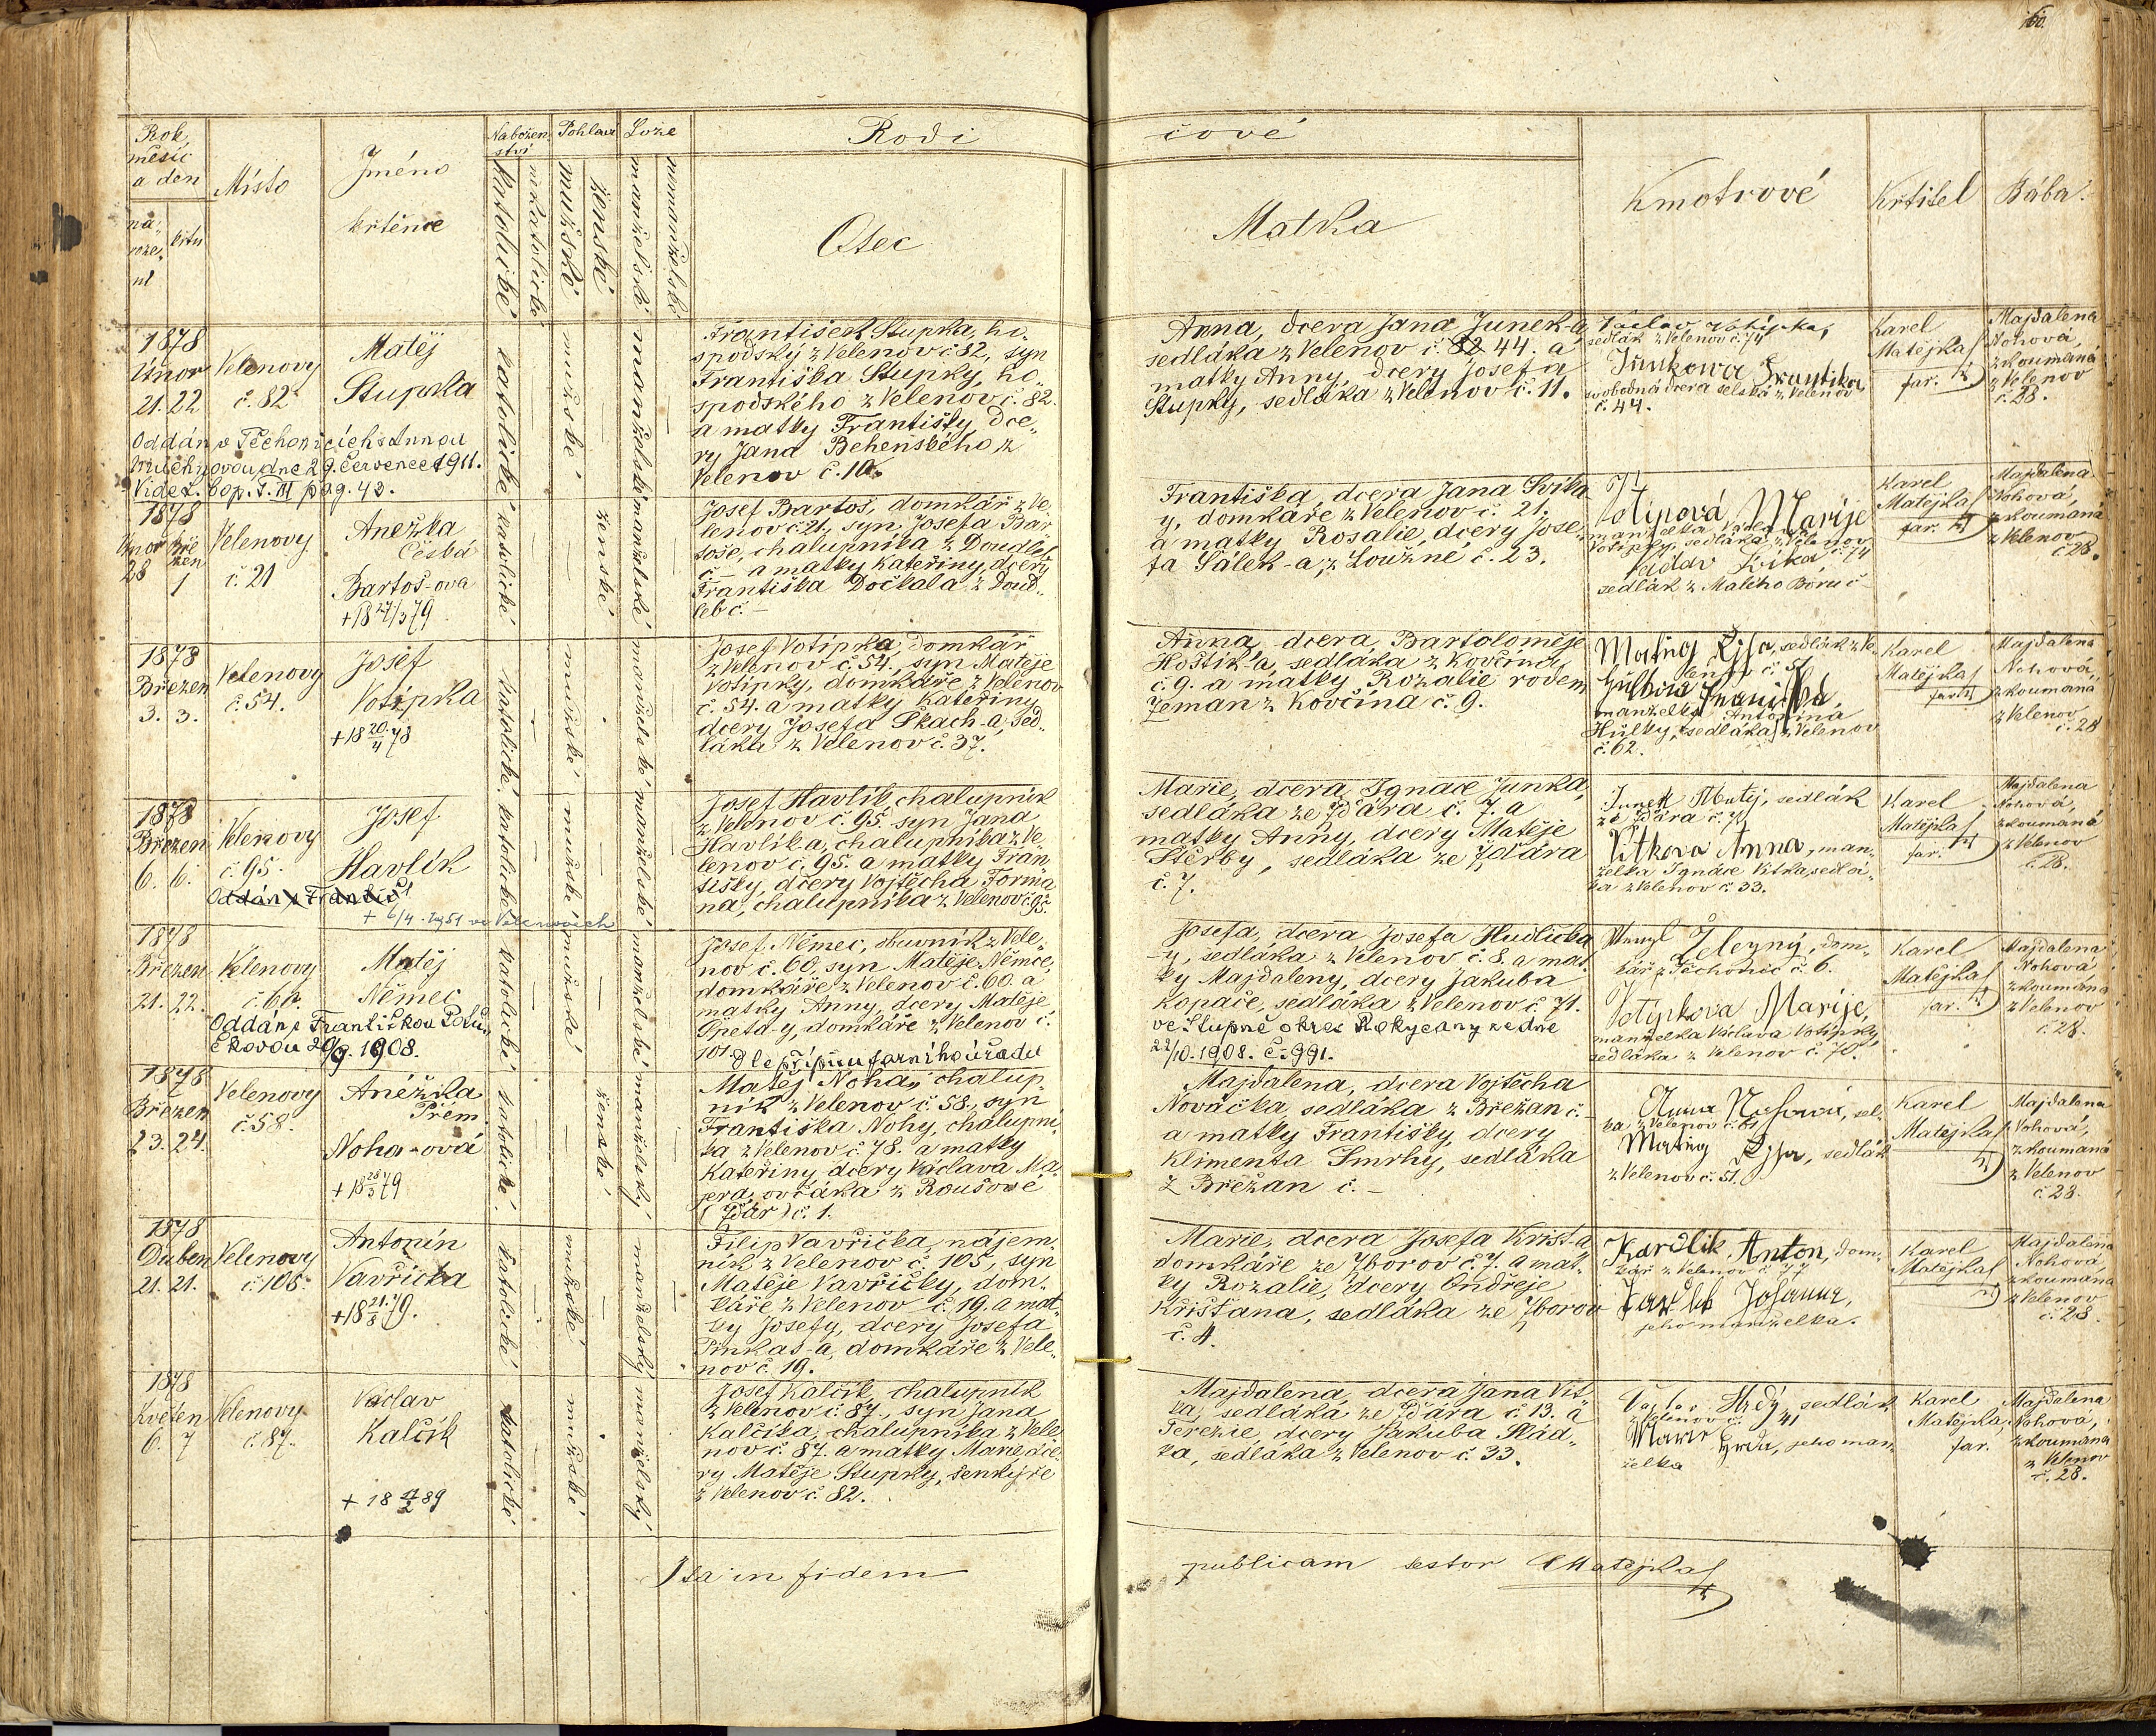 60.
Rok
měsíc
a den
naro-
ze-
ní
křtu
Místo
Jméno
křtěnce
Nábožen-
ství
katolické
nekatolické
Pohlaví
mužské
ženské
Lože
manželské
nemanželské
Rodi
čové
Otec
Matka
Kmotrové
Křtitel
Bába
1878
Únor
21. 22
Velenovy
č. 82
Matěj
Stupka
Oddán v Těchonicích s Annou
dne 29. července 1911.
Vide L. Cop. T. III pag. 43.
katolické
mužské
manželské
František Stupka, ho-
spodský z Velenov č. 82, syn
Františka Stupky, ho-
spodského z Velenov č. 82.
a matky Františky, dce-
ry Jana Behenského z
Velenov č. 10.
Anna, dcera Jana Junek-a
sedláka z Velenov č. 82 44. a
matky Anny, dcery Josefa
Stupky, sedláka z Velenov č. 11.
Václav Votipka,
sedlák z Velenov č. 74
Junkowa Frantiska
svobodná dcera selská z Velenov
č. 44.
Karel
Matějka
far.
Majdalena
Nohová,
zkoumaná
z Velenov
č. 28.
1878
Únor Bře-
zen
28 1
Velenovy
č. 21
Anežka
Česká
Bartoš-ova
+ 18 27/3 79
katolické
ženské
manželské
Josef Bartoš, domkář z Ve-
lenov č. 21, syn Josefa Bar-
toše, chalupníka z Doudleb
č. – a matky Kateřiny, dcery
Františka Dočkala z Doud-
leb č. –
Františka, dcera Jana Svitka
y, domkáře z Velenov č. 21.
a matky Rosalie, dcery Jose-
fa Sálek-a, z Loužné č. 23.
Votipová Marije
manželka Václava
Votipky, sedláka z Velenov
č. 74
sedlák z Malého Boru č
Karel
Matějka
far.
Majdalena
Nohová,
zkoumaná
z Velenov
č. 28.
1878
Březen
3. 3.
Velenovy
č. 54.
Josef
Votipka
+ 18 20/4 78
katolické
mužské
manželské
Josef Votipka, domkář
z Velenov č. 54., syn Matěje
Votipky, domkáře z Velenov
č. 54. a matky Kateřiny
dcery Josefa Skach-a, sed-
láka z Velenov č. 37.
Anna, dcera Bartoloměje
Hoštík-a, sedláka z Kovčína
č. 9. a matky Rozalie rodem
Zeman z Kovčína č. 9.
sedlák z Ve-
lenov č. 51
manželka Antonína
Hulky, sedláka z Velenov
č. 62.
Karel
Matějka
far.
Majdalena
Nohová,
zkoumaná
z Velenov
č. 28
1878
Březen
6. 6.
Velenovy
č. 95.
Josef
Havlík
Oddán s Františ
+ 6/4. 1951 ve Velenovech
katolické
mužské
manželské
Josef Havlík, chalupník
z Velenov č. 95. syn Jana
Havlíka, chalupníka z Ve-
lenov č. 95. a matky Fran-
tišky, dcery Vojtěcha Forma-
na, chalupníka z Velenov č. 95.
Marie, dcera Ignáce Junka,
sedláka ze Žďára č. 7. a
matky Anny, dcery Matěje
Štěrby, sedláka ze Žďára
č. 7.
Junek Matej, sedlák
ze Žďára č. 7
Vitkova Anna, man-
želka Ignáce Vitka, sedlá-
ka z Velenov č. 33.
Karel
Matějka
far.
Majdalena
Nohová,
zkoumaná
z Velenov
č. 28.
1878
Březen
21. 22.
Velenovy
č. 60.
Matěj
Němec
Oddán s Františkou
20/9. 1908.
katolické
mužské
manželské
Josef Němec, obuvník z Vele-
nov č. 60, syn Matěje Němce,
domkáře z Velenov č. 60. a
matky Anny, dcery Matěje
Opeta-y, domkáře z Velenov č.
101.
dle přípisu farního úřadu
Josefa, dcera Josefa Hudlička
-y, sedláka z Velenov č. 8. a mat-
ky Majdaleny, dcery Jakuba
Kopače, sedláka z Velenov č. 71.
ve Stupně okres Rokycany ze dne
22/10. 1908. č. 991.
Železný, dom-
kář z Těchonic č. 6.
Votipkova Marije,
manželka Václava Votipky
sedláka z Velenov č. 70.
Karel
Matějka
far.
Majdalena
Nohová
zkoumaná
z Velenov
č. 28.
1878
Březen
23. 24.
Velenovy
č. 58.
Anežka
Přem.
Noha-ová
+ 18 28/5 79
katolické
ženské
manželský
Matěj Noha, chalup-
ník z Velenov č. 58, syn
Františka Nohy, chalupní-
ka z Velenov č. 78. a matky
Kateřiny dcery Václava Ma-
jera, ovčáka z Roušové
(Žďár) č. 1.
Majdalena, dcera Vojtěcha
Nováčka, sedláka z Břežan č. –
a matky Františky, dcery
Klimenta Smrhy, sedláka
z Břežan č. –
Anna Nohová, sel-
ka z Velenov č. 61
sedlák
z Velenov č. 51.
Karel
Matějka
Majdalena
Nohová,
zkoumaná
z Velenov
č. 28.
1878
Duben
21. 21.
Velenovy
č. 105.
Antonín
Vavřička
+ 18 21/8 79.
katolické
mužské
manželský
Filip Vavřička, nájem-
ník z Velenov č. 105, syn
Matěje Vavřičky, dom-
káře z Velenov č. 19. a mat-
ky Josefy, dcery Josefa
Pinkas-a, domkáře z Vele-
nov č. 19.
Marie, dcera Josefa Krist-a
domkáře ze Zborov č. 7. a mat-
ky Rozalie, dcery Ondřeje
Krišťana, sedláka ze Zborov
č. 4.
Kardlik Anton, dom-
kář z Velenov č. 77
Johanna,
jeho manželka.
Karel
Matějka
Majdalena
Nohová,
zkoumaná
z Velenov
č. 28.
1878
Květen
6. 7
Velenovy
č. 87.
Václav
Kalčík
+ 18 4/2 89
katolické
mužské
manželský
Josef Kalčík, chalupník
z Velenov č. 87., syn Jana
Kalčíka, chalupníka z Vele-
nov č. 87. a matky Marie, dce-
ry Matěje Stupky, šenkýře
z Velenov č. 82.
Majdalena, dcera Jana Vít-
ka, sedláka ze Žďára č. 13. a
Terezie, dcery Jakuba Hád-
ka, sedláka z Velenov č. 33.
Hrdý, sedlák
z Velenov č. 41
Marie Hrda, jeho man-
želka
Karel
Matějka,
far.
Majdalena
Nohová,
zkoumaná
z Velenov
č. 28.
Ita in fidem
publicam testor Matějka